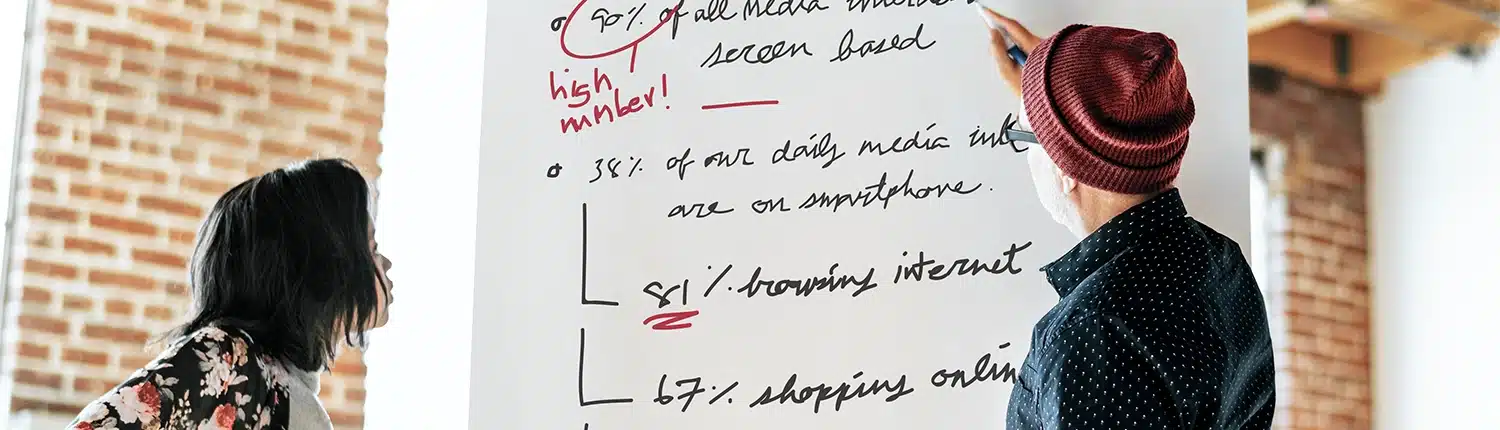 90% of all media
screen based
high
number!
38% of our daily media
are on smartphone.
81% browsing internet
67% shopping onlin